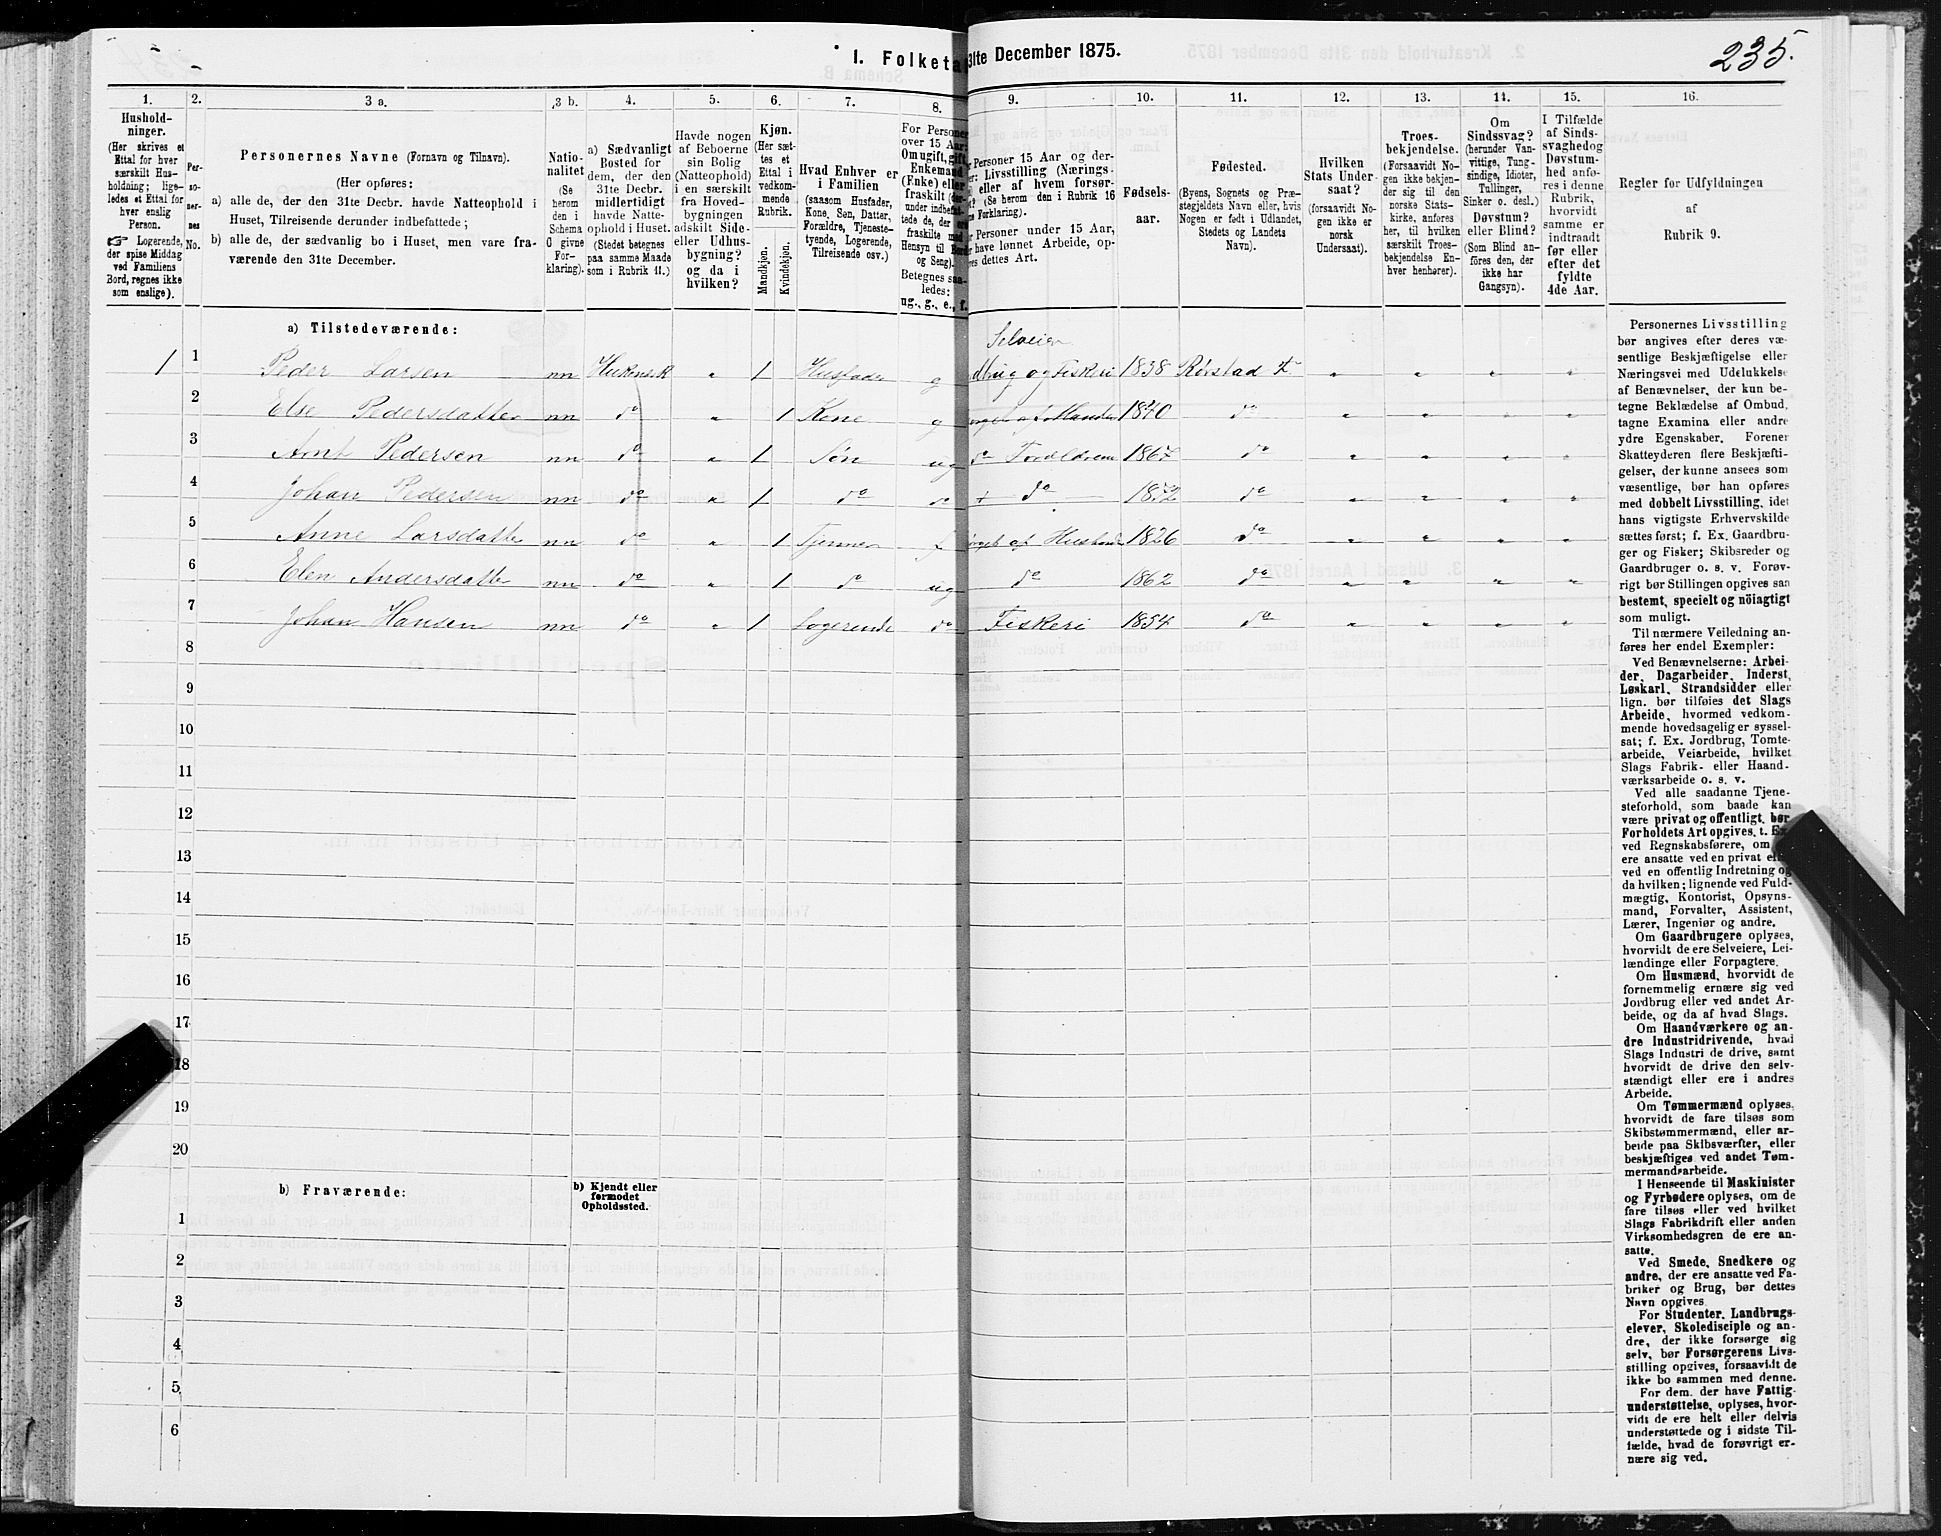 1. Folketa
31te December 1875.
235.
1.
2.
3 a.
3 b.
4.
5.
6.
7.
8.
9.
10.
11.
12.
13.
14.
15.
16.
Hushold-
ninger.
(Her skrives et
Ettal for hver
særskilt Hus-
holdning; lige-
ledes et Ettal for
hver enslig
Person.
☞ Logerende,
der spise Middag
ved Familiens
Bord, regnes ikke
som enslige).
Per-
so-
ner-
nes
No.
Personernes Navne (Fornavn og Tilnavn).
(Her opføres:
a) alle de, der den 31te Decbr. havde Natteophold i
Huset, Tilreisende derunder indbefattede;
b) alle de, der sædvanlig bo i Huset, men vare fra-
værende den 31te December.
Natio-
nalitet
(Se
herom
den i
Schema
O givne
For-
klaring).
a) Sædvanligt
Bosted for
dem, der den
31te Decbr.
midlertidigt
havde Natte-
ophold i Huset.
(Stedet betegnes
paa samme Maade
som i Rubrik 11.)
Havde nogen
af Beboerne
sin Bolig
(Natteophold)
i en særskilt
fra Hoved-
bygningen
adskilt Side-
eller Udhus-
bygning?
og da i
hvilken?
Kjøn.
(Her sæt-
tes et
Ettal i
vedkom-
mende
Rubrik.
Mandkjøn.
Kvindekjøn.
Hvad Enhver er
i Familien
(saasom Husfader,
Kone, Søn, Datter,
Forældre, Tjeneste-
tyende, Logerende,
Tilreisende osv.)
For Personer
over 15 Aar:
Om ugift, gift,
Enkemand
(Enke) eller
fraskilt (der-
under indbefat-
tede de, der ere
fraskilte med
Hensyn til Bord
og Seng).
Betegnes saa-
ledes:
ug., g., e., f.
r Personer 15 Aar og der-
er: Livsstilling (Nærings-
) eller af hvem forsør-
t? (Se herom den i Rubrik 16
ne Forklaring).
r Personer under 15 Aar,
have lønnet Arbeide, op-
res dettes Art.
Fødsels-
aar.
Fødested.
(Byens, Sognets og Præ-
stegjeldets Navn eller, hvis
Nogen er født i Udlandet,
Stedets og Landets
Navn).
Hvilken
Stats Under-
saat?
(forsaavidt No-
gen ikke er
norsk
Undersaat).
Troes-
bekjendelse.
(Forsaavidt No-
gen ikke bekjen-
der sig til den
norske Stats-
kirke, anføres
her, til hvilken
særskilt Troes-
bekjendelse En-
hver henhører).
Om
Sindssvag?
(herunder Van-
vittige, Tung-
sindige, Idioter,
Tullinger,
Sinker o. desl.)
Døvstum?
eller Blind?
(Som Blind an-
føres den, der
ikke har
Gangsyn).
I Tilfælde
af Sinds-
svaghed og
Døvstum-
hed anfø-
res i denne
Rubrik,
hvorvidt
samme er
indtraadt
før eller
efter det
fyldte
4de Aar.
Regler for Udfyldningen
af
Rubrik 9.
a) Tilstedeværende:
Selveier
1 1 Peder Larsen nn „ 1 Husfader g og Fiskeri 1838 Rørstad „ „ „ „
2 Else Pedersdatter nn do „ 1 Kone g 1840 do „ „ „ „
3 Arnt Pedersen nn do „ 1 Søn ug 1867 do „ „ „ „
4 Johan Pedersen nn do „ 1 do do do 1872 do „ „ „ „
5 Anne Larsdatter nn do „ 1 f af 1826 do „ „ „ „
6 Elen Andersdatter nn do „ 1 do ug do 1862 do „ „ „ „
7 Johan Hansen nn do „ 1 Logerende do Fiskeri 1854 do „ „ „ „
8
9
10
11
12
13
14
15
16
17
18
19
20
b) Fraværende:
b) Kjendt eller
formodet
Opholdssted.
1
2
3
4
5
6
Personernes Livsstilling
bør angives efter deres væ-
sentlige Beskjæftigelse eller
Næringsvei med Udelukkelse
af Benævnelser, der kun be-
tegne Beklædelse af Ombud,
tagne Examina eller andre
ydre Egenskaber. Forener
Skatteyderen flere Beskjæfti-
gelser, der kunne ansees som
væsentlige, bør han opføres
med dobbelt Livsstilling, idet
hans vigtigste Erhvervskilde
sættes først; f. Ex. Gaardbru-
ger og Fisker; Skibsreder og
Gaardbruger o. s. v. Forøv-
rigt bør Stillingen opgives saa
bestemt, specielt og nöiagtigt
som muligt.
Til nærmere Veiledning an-
føres her endel Exempler:
Ved Benævnelserne: Arbei-
der, Dagarbeider, Inderst,
Løskarl, Strandsidder eller
lign. bør tilføies det Slags
Arbeide, hvormed vedkom-
mende hovedsagelig er syssel-
sat; f. Ex. Jordbrug, Tomte-
arbeide, Veiarbeide, hvilket
Slags Fabrik- eller Haand-
værksarbeide o. s. v.
Ved alle saadanne Tjene-
steforhold, som baade kan
være privat og offentligt, bør
Forholdets Art opgives, t. Ex.
ved Regnskabsførere, om
ere ansatte ved en privat el
ved en offentlig Indretning og
da hvilken; lignende ved Fuld-
mægtig, Kontorist, Opsyns-
mand, Forvalter, Assistent,
Lærer, Ingeniør og andre.
Om Gaardbrugere oplyses,
hvorvidt de ere Selveiere, Lei-
lændinge eller Forpagtere.
Om Husmænd, hvorvidt de
fornemmelig ernære sig ved
Jordbrug eller ved andet Ar-
beide, og da af hvad Slags.
Om Haandværkere og an-
dre Industridrivende, hvad
Slags Industri de drive, samt
hvorvidt de drive den selv-
stændigt eller ere i andres
Arbeide.
Om Tømmermænd oplyses,
hvorvidt de fare tilsøs som
Skibstømmermænd, eller ar-
beide paa Skibsværfter, eller
beskjæftiges ved andet Tøm-
mermandsarbeide.
I Henseende til Maskinister
og Fyrbødere oplyses, om de
fare tilsøs eller ved hvilket
Slags Fabrikdrift eller anden
Virksomhedsgren de ere an-
satte.
Ved Smede, Snedkere og
andre, der ere ansatte ved Fa-
briker og Brug, bør dettes
Navn opgives.
For Studenter, Landbrugs-
elever, Skoledisciple og an-
dre, der ikke forsørge sig
selv, bør Forsørgerens Livs-
stilling opgives, forsaavidt de
ikke bo sammen med denne.
For dem, der have Fattig-
understøttelse, oplyses, hvor-
vidt de ere helt eller delvis
understøttede og i sidste Til-
fælde, hvad de forøvrigt er-
nære sig ved.